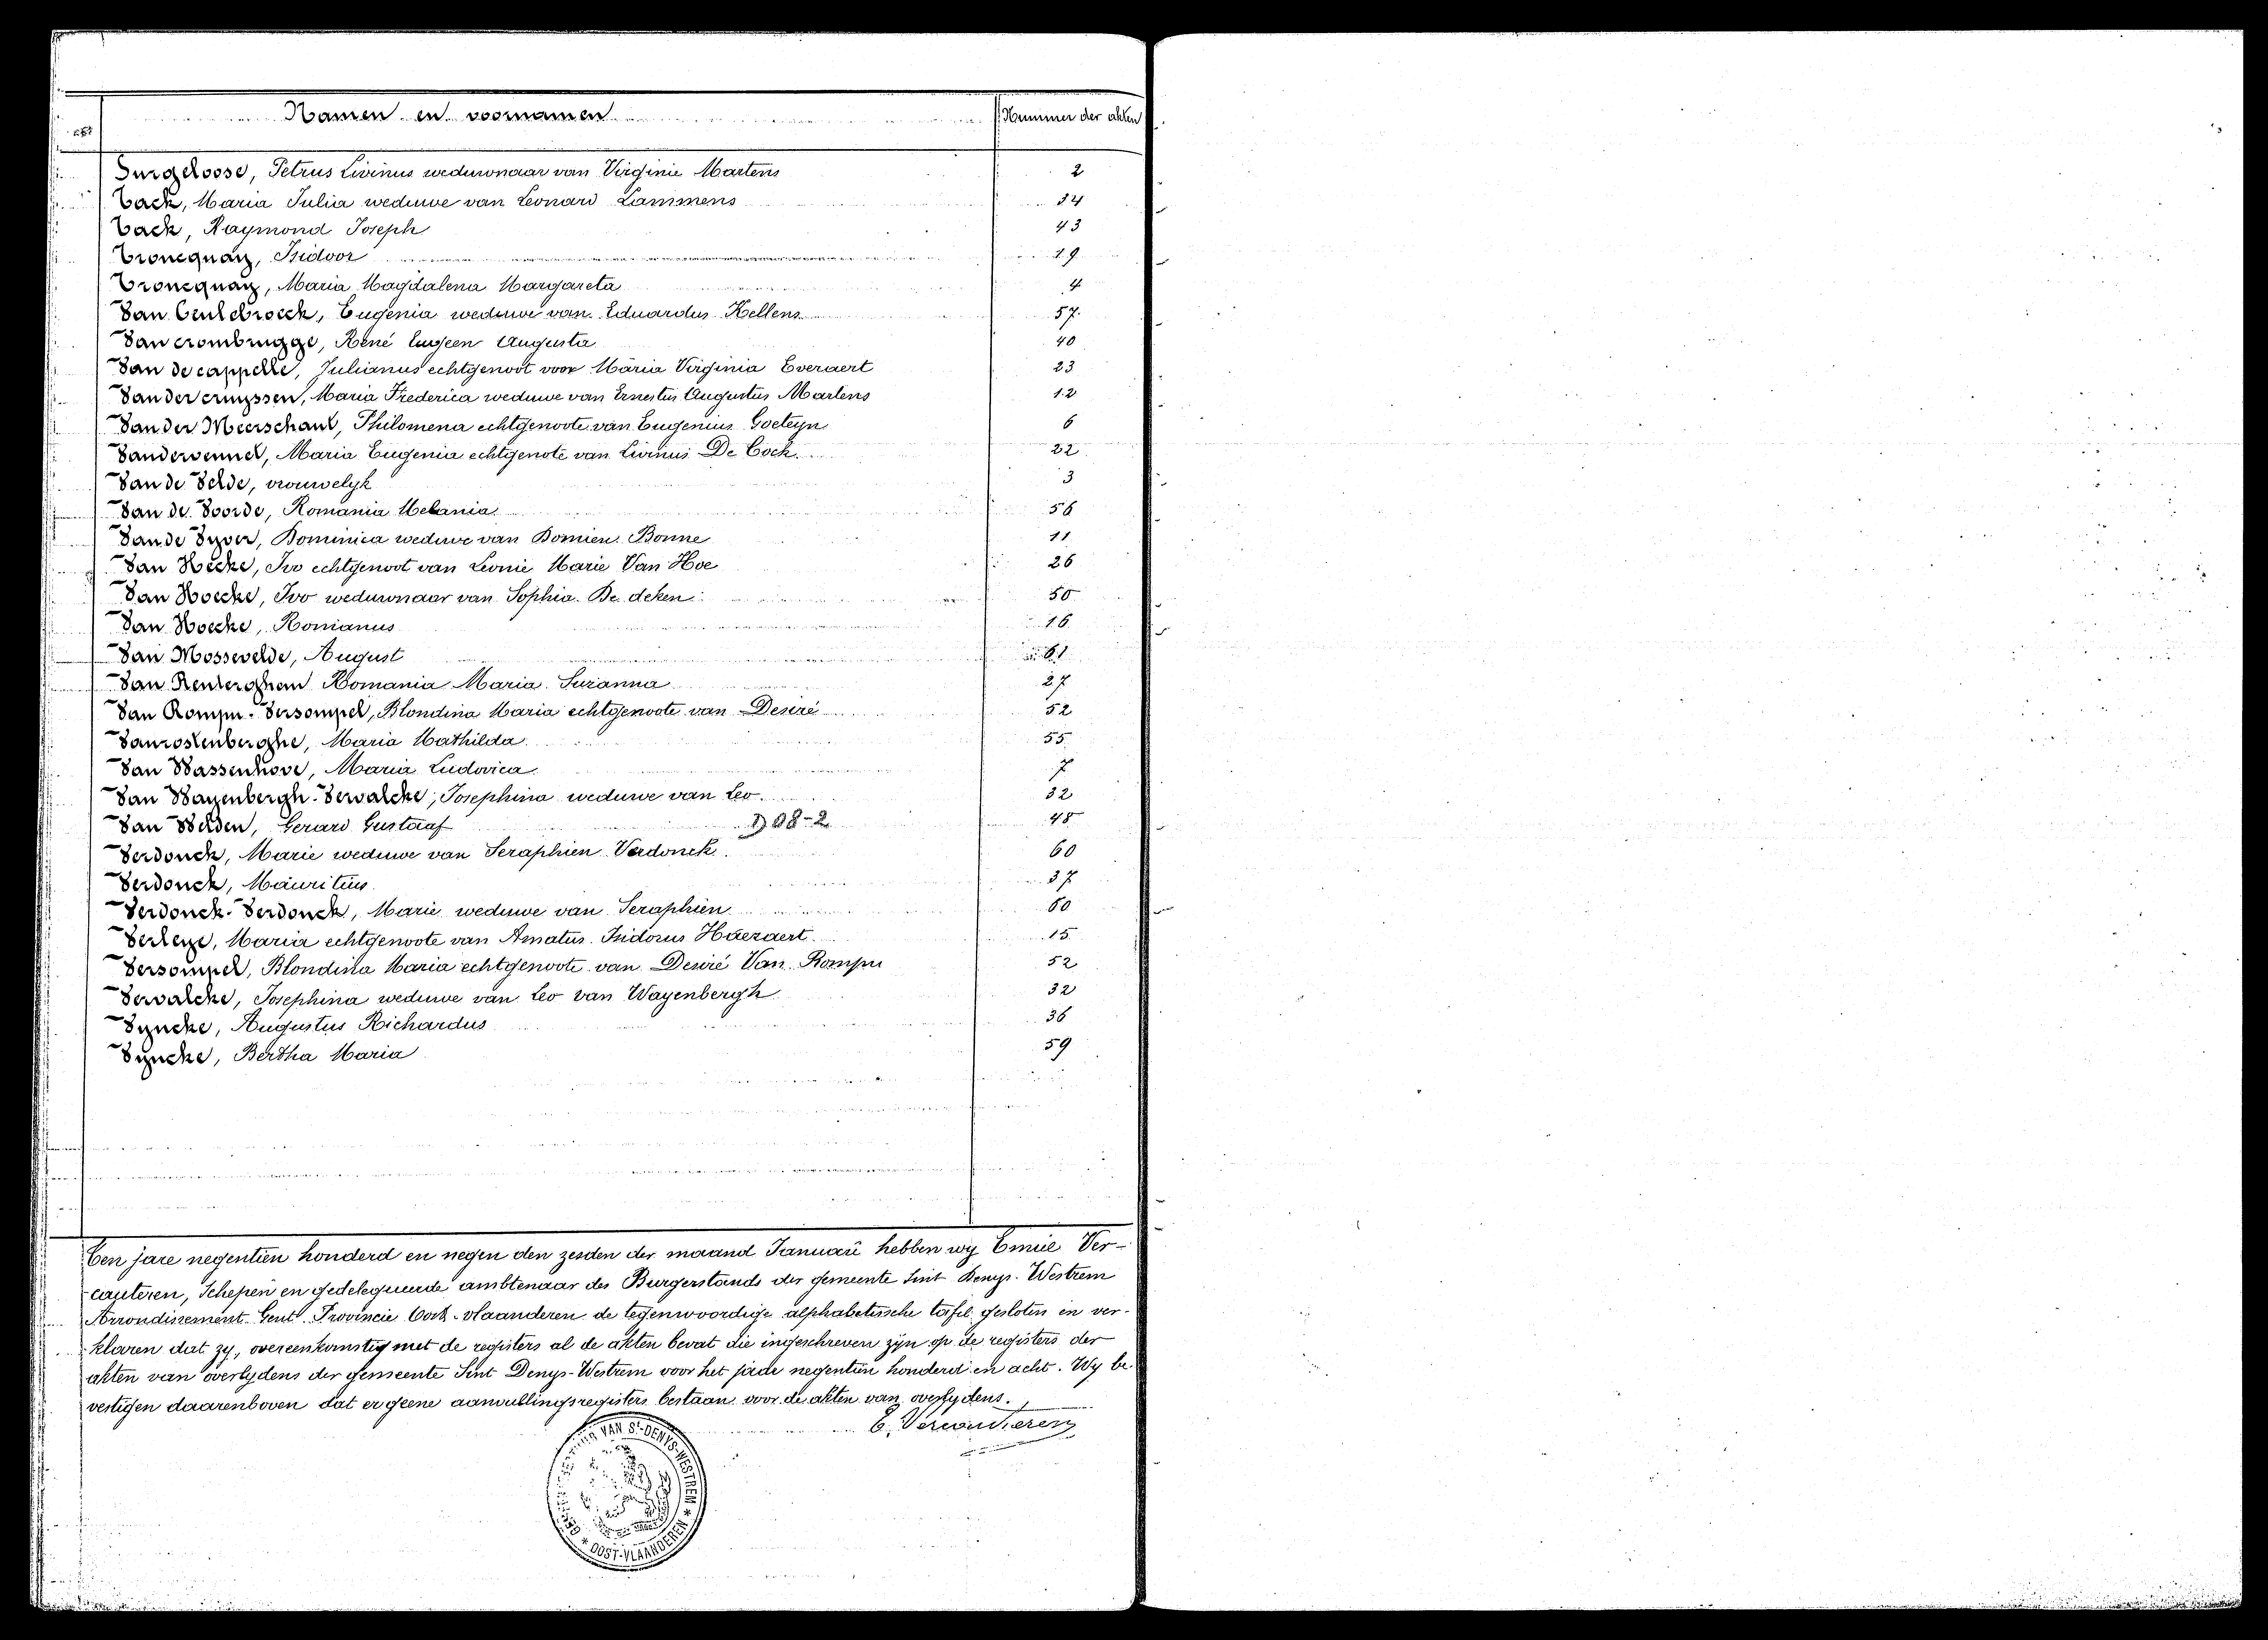 Namen en voornamen Nummer der akten
Surgeloose, Petrus Livinus weduwnaar van Virginie Martens 2
Tack, Maria Julia weduwe van Leonard Lammens 34
Tack, Raymond Joseph 43
Troncquay, Isidoor 19
Troncquay, Maria Magdalena Margareta 4
Van Ceulebroeck, Eugenia weduwe van Eduardus Hellens 57
Van crombrugge, René Eugeen Augusta 40
Van de cappelle, Julianus echtgenoot voor Maria Virginia Everaert 23
Van der cruyssen, Maria Frederica weduwe van Ernestus Augustus Martens 12
Van der Meerschaut, Philomena echtgenoote van Eugenius Goeteyn 6
Vandervennet, Maria Eugenia echtgenote van Livinus De Cock 22
Van de Velde, vrouwelyk 3
Van de Voorde, Romania Melania 56
Van de Vyver, Dominica weduwe van Domien Bonne 11
Van Hecke, Ivo echtgenoot van Leonie Marie Van Hoe 26
Van Hoecke, Ivo weduwnaar van Sophia De deken 50
Van Hoecke, Romanus 16
Van Mossevelde, August 61
Van Renterghem Romania Maria Suzanna 27
Van Rompu-Versompel, Blondina Maria echtgenoote van Desiré 52
Vanrostenberghe, Maria Mathilda 55
Van Wassenhove, Maria Ludovica 7
Van Wayenbergh-Vervalcke, Josephina weduwe van Leo 32
Van Welden, Gerard Gustaaf 1908-2 48
Verdonck, Marie weduwe van Seraphien Verdonck 60
Verdonck, Mauritius 37
Verdonck-Verdonck, Marie weduwe van Seraphien 60
Verleye, Maria echtgenoote van Amatus Isidorus Haezaert 15
Versompel, Blondina Maria echtgenoote van Desiré Van Rompu 52
Vervalcke, Josephina weduwe van Leo van Wayenbergh 32
Vyncke, Augustus Richardus 36
Vyncke, Bertha Maria 59
Ten jare negentien honderd en negen den zesden der maand Januari hebben wy Emiel Ver-
cauteren, Schepen en gedelegueerde ambtenaar des Burgerstands der gemeente Sint Denys-Westrem
Arrondissement Gent Provincie Oost-vlaanderen de tegenwoordige alphabetische tafel gesloten en ver-
klaren dat zy, overeenkomstig met de registers al de akten bevat die ingeschreven zyn op de registers der
akten van overlydens der gemeente Sint Denys-Westrem voor het jare negentien honderd en acht. Wy be-
vestigen daarenboven dat er geene aanvullingsregisters bestaan voor de akten van overlydens.
E. Vercauteren
VAN St-DENYS-WESTREM * OOST-VLAANDEREN *